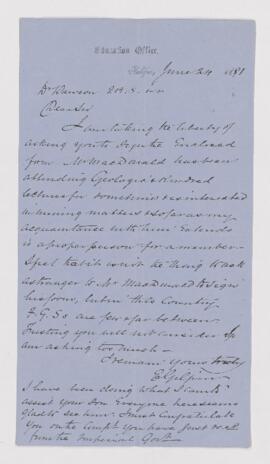 Education Office,
Halifax, June 24 1881
Dr Dawson
Dear Sir
I am taking the liberty of
asking you to sign the Enclosed
form Mr MacDonald has been
attending Geological &
lectures for sometime & is interested
in mining matters & so far as my
acquaintance with him Extends
is a proper person for a member –
I feel that it is not the thing to ask
a stranger to Mr MacDonald to sign
his form, but in this Country
F.G.S.s are few & far between
Trusting you will not consider I
am asking too much –
I remain yours truly
I have been doing what I can to
assist your Son Everyone here seems
glad to see him. I must Congratulate
you on the Compt you have just
from the Imperial Govt